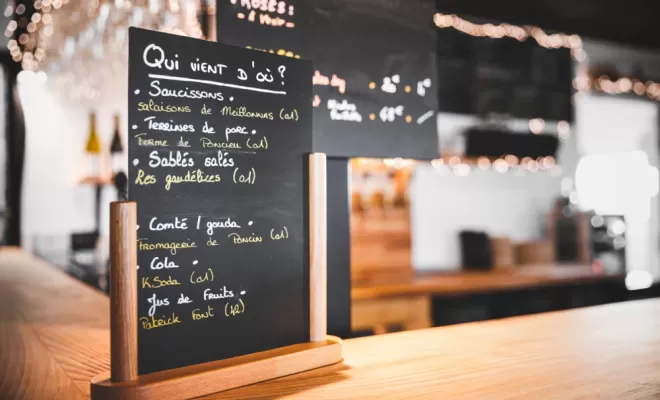 Qui vient d'où ?
• Saucissons •
salaisons de Meillonnas (01)
• Terrines de porc •
Ferme de Poncieu (01)
• Sablés salés
Les gaudélices (01)
• Comté / gouda •
Fromagerie de Poncin (01)
• Cola •
K.Soda (01)
Jus de fruits •
Patrick Font (42)
ROSÉS :